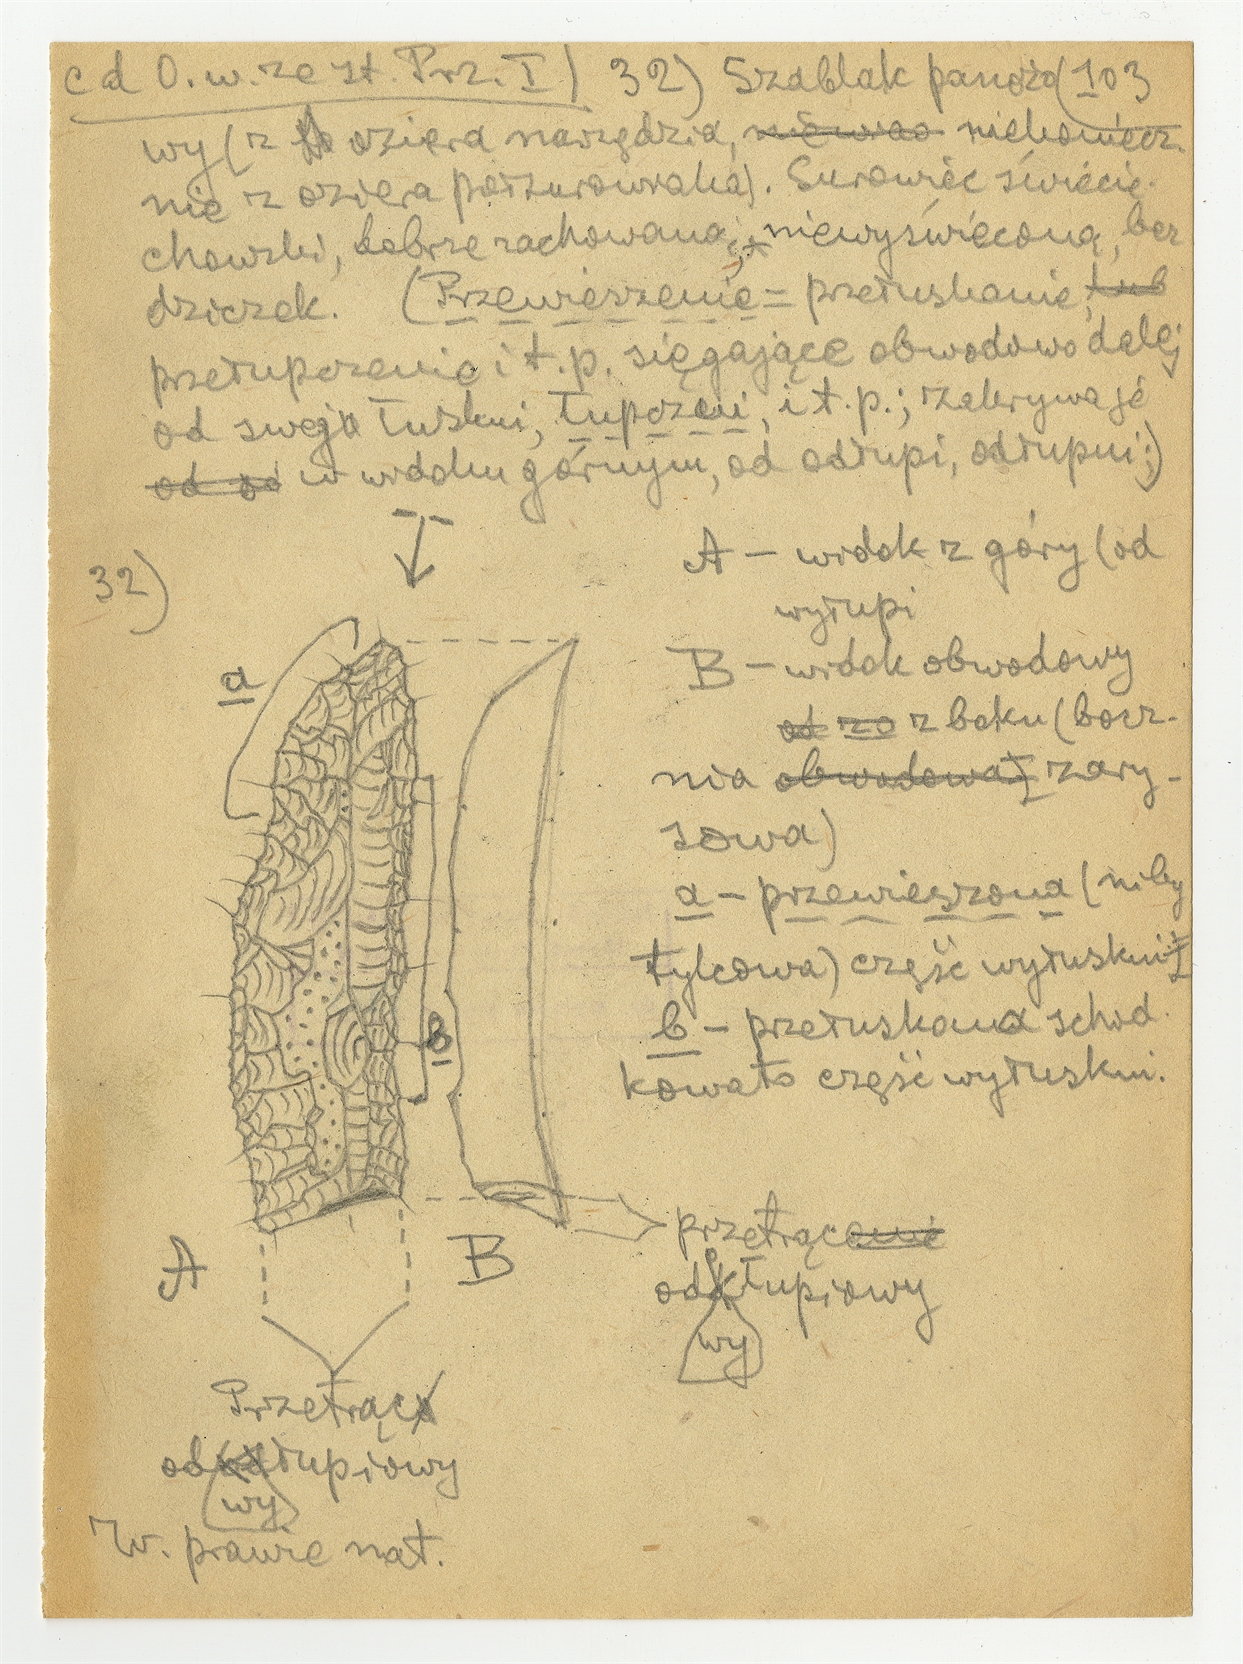 c d O. w. ze st. Prz. I) 32) Szablak panożo (103
wy (z oziera narzędzia, niekoniecz
nie z oziera półsurowiaka). Surowiec świecie-
chowski, dobrze zachowana, niewyświeconą, bez
dziczek. (Przewieszenie = przełuskanie, lub
przełupczenie i t.p. sięgające obwodowo dalej
od swoja łuskni, łupczeni, i t.p.; zakrywa je
od od w widoku górnym, od odłupi, odłupni;)
32)
A – widok z góry (od
wyłupi
B – widok obwodowy
od zo z boku (bocz-
nia obwodowa) zary-
sowa)
a
a – przewieszona (niby
tylcowa) część wyłuskni
b
b – przełuskana schod
kowato część wyłuskni.
A
B
przetrącanie
odłupiowy
wy
Przetrąc
odłupiowy
wy
W. prawie nat.